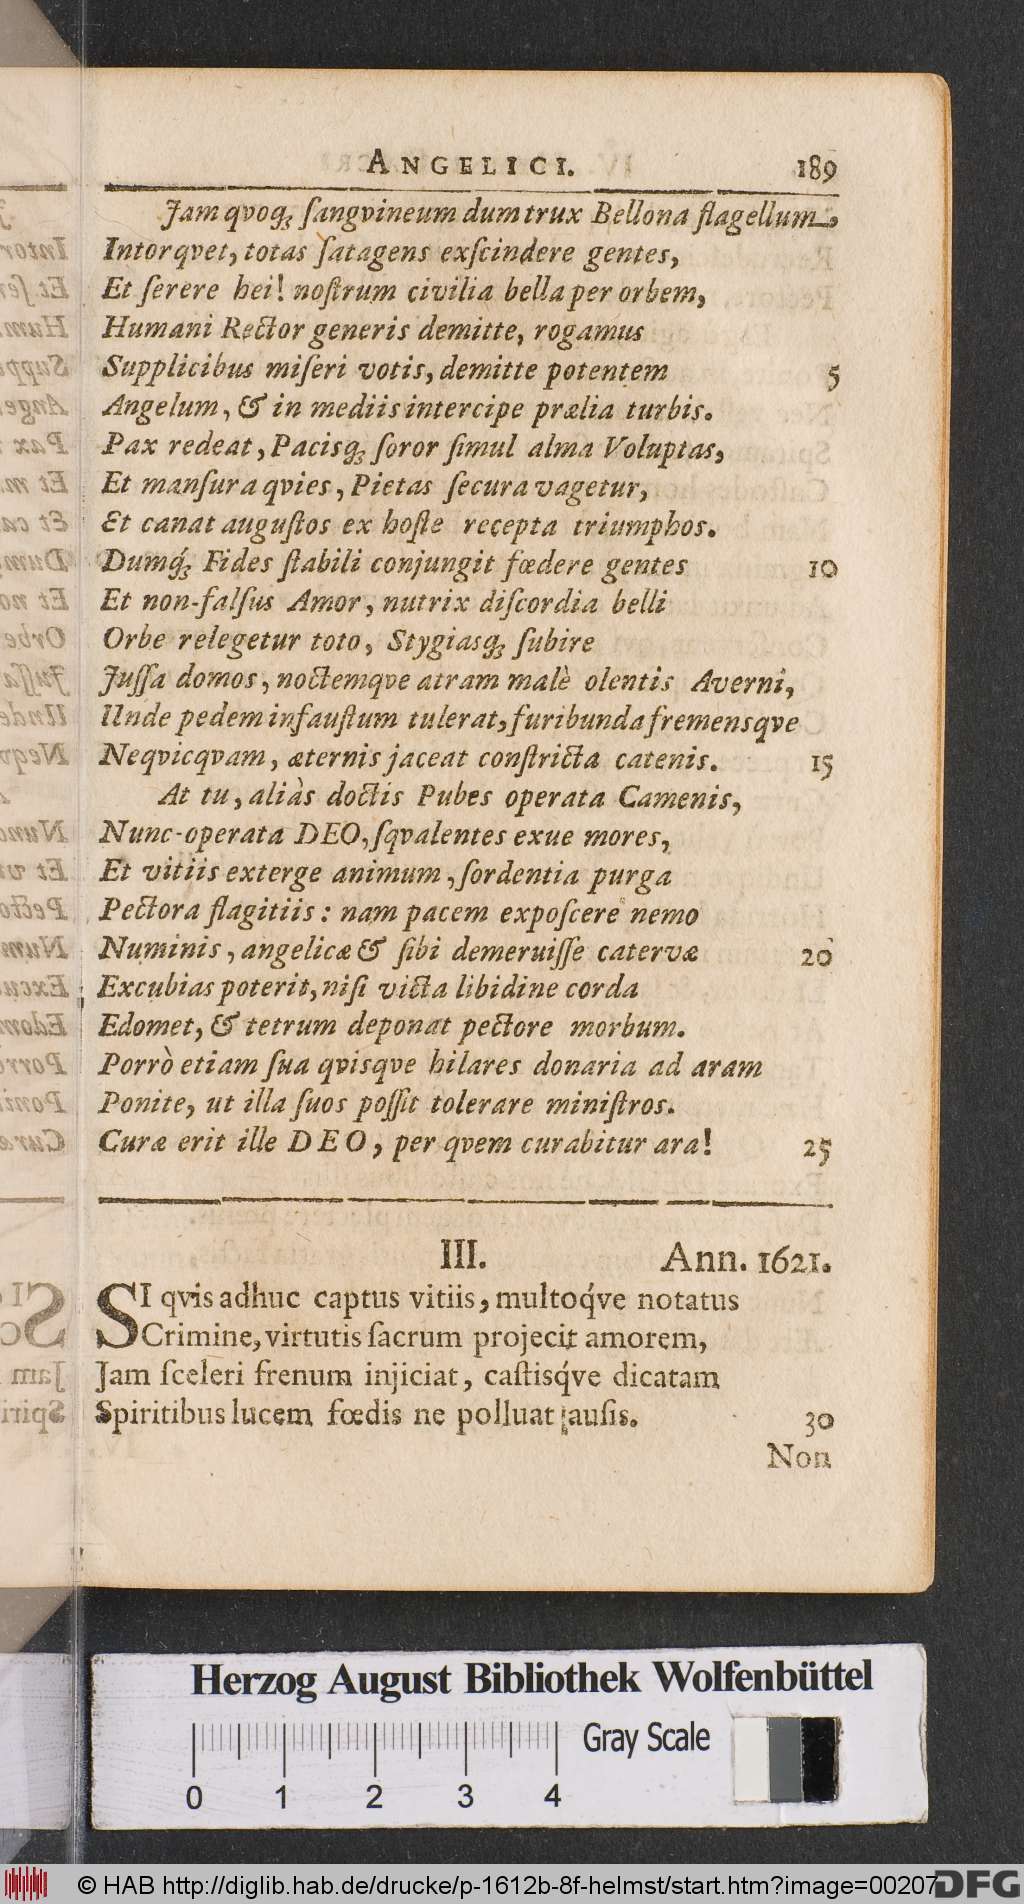 ANGELICI. 189
Jam qvoqꝫ ſangvineum dum trux Bellona flagellum,
Intorqvet, totas ſatagens exſcindere gentes,
Et ſerere hei! noſtrum civilia bella per orbem,
Humani Rector generis demitte, rogamus
Supplicibus miſeri votis, demitte potentem 5
Angelum, & in mediis intercipe prælia turbis.
Pax redeat, Pacisqꝫ ſoror ſimul alma Voluptas,
Et manſura qvies, Pietas ſecura vagetur,
Et canat auguſtos ex hoſte recepta triumphos.
Dumq́ꝫ Fides ſtabili conjungit fœdere gentes 10
Et non-falſus Amor, nutrix diſcordia belli
Orbe relegetur toto, Stygiasqꝫ ſubire
Juſſa domos, noctemqve atram malè olentis Averni,
Unde pedem infauſtum tulerat, furibunda fremensqve
Neqvicqvam, æternis jaceat conſtricta catenis. 15
At tu, aliàs doctis Pubes operata Camenis,
Nunc-operata DEO, ſqvalentes exue mores,
Et vitiis exterge animum, ſordentia purga
Pectora flagitiis: nam pacem expoſcere nemo
Numinis, angelicæ & ſibi demeruiſſe catervæ 20
Excubias poterit, niſi victa libidine corda
Edomet, & tetrum deponat pectore morbum.
Porrò etiam ſua qvisqve hilares donaria ad aram
Ponite, ut illa ſuos poſſit tolerare miniſtros.
Curæ erit ille DEO, per qvem curabitur ara! 25
III. Ann. 1621.
SI qvis adhuc captus vitiis, multoq́ve notatus
Crimine, virtutis ſacrum projecit amorem,
Jam ſceleri frenum injiciat, caſtisq́ve dicatam
Spiritibus lucem fœdis ne polluat auſis. 30
Non
Herzog August Bibliothek Wolfenbüttel
Gray Scale
0 1 2 3 4
© HAB http://diglib.hab.de/drucke/p-1612b-8f-helmst/start.htm?image=00207
DFG